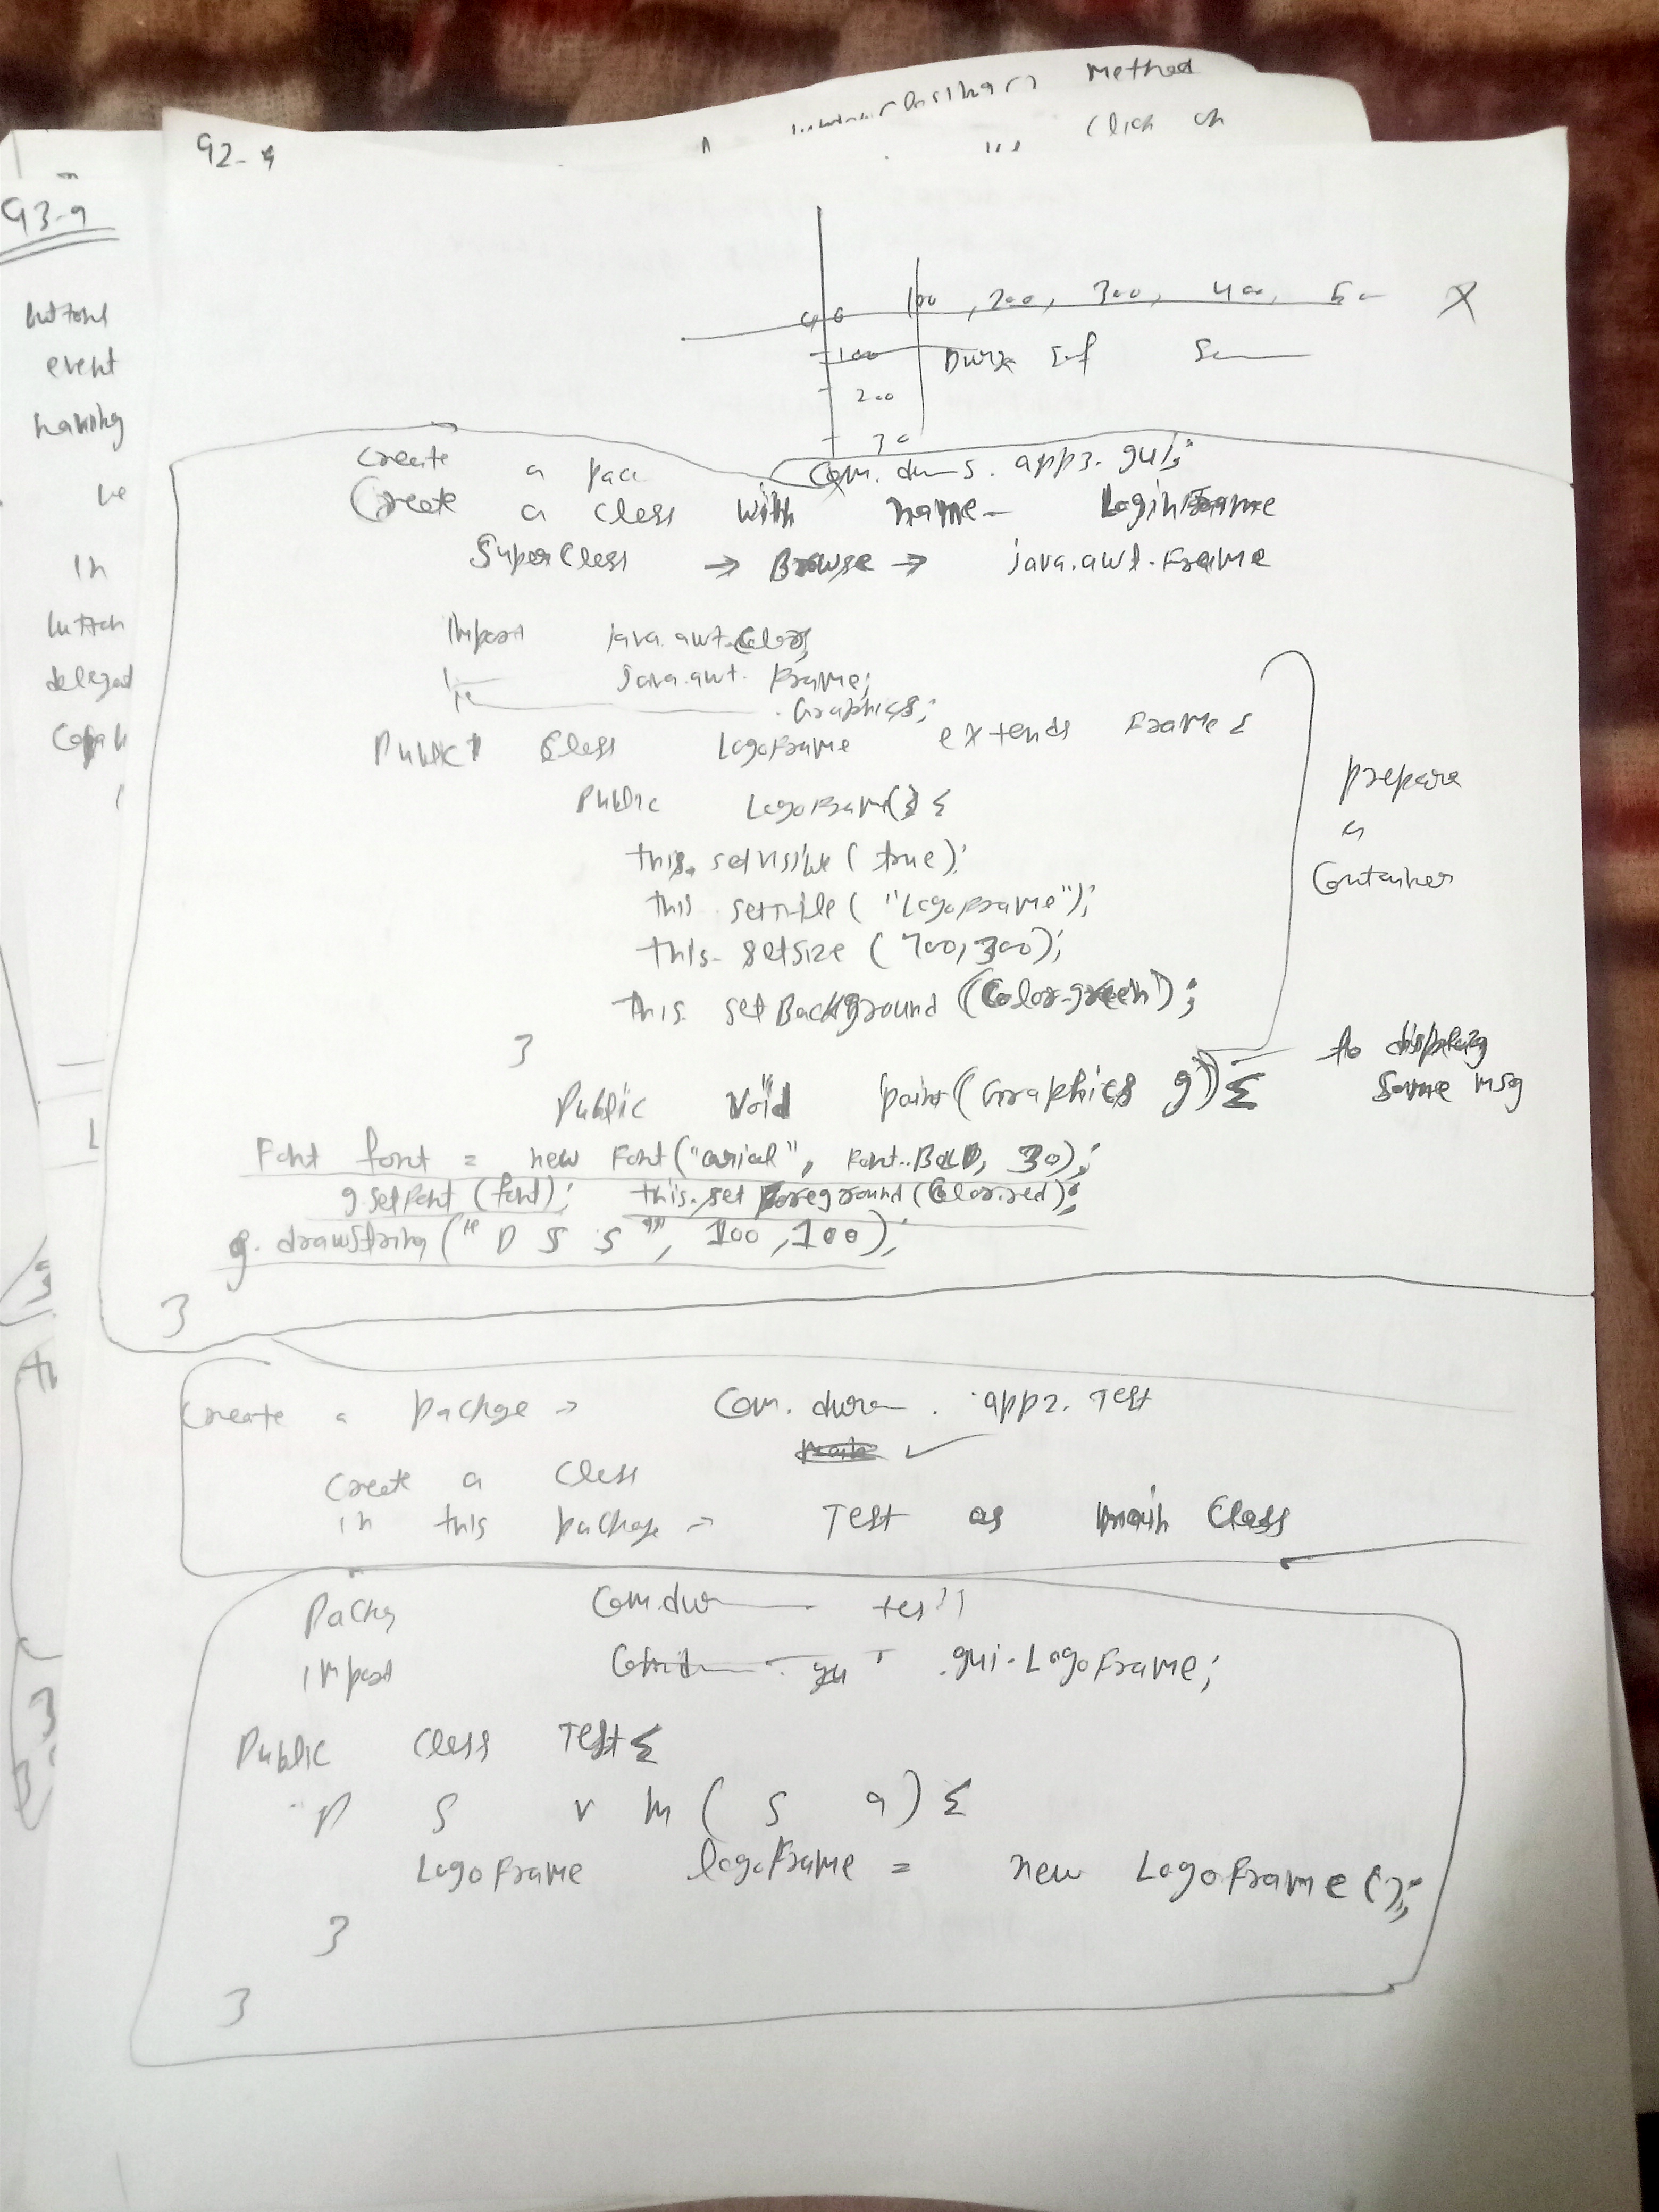 Method
Click on
92-9
93-9
buttons
event
having
in
button
delegat
100, 200, 300, 400, 50
X
100 Durga Sof S
200
30
create a pac com.dur s. app3. gui;
Create a class with name - LoginFrame
SuperClass → Browse → java.awt.Frame
Import java.awt.Color;
java.awt. Frame;
. Graphics;
Public class LogoFrame extends Frame {
Public LogoFrame() {
this. setvisible (true);
this. setTitle ("LogoFrame");
this. setsize (700, 300);
this. setBackground (Color.green);
}
prepare
a
Container
Public void paint(Graphics g) {
to display
some msg
Font font = new Font("arial", Font.BOLD, 30);
g.setFont (font); this.set Foreground (Color.red);
g. drawString ("D S S", 100, 100);
}
Create a package → Com. durga . app2. Test
Create a class
in this package → Test as main Class
Packg Com.dur test;
import Com.d gui.LogoFrame;
Public class Test {
P S v m ( S a ) {
LogoFrame logoFrame = new LogoFrame ();
}
}